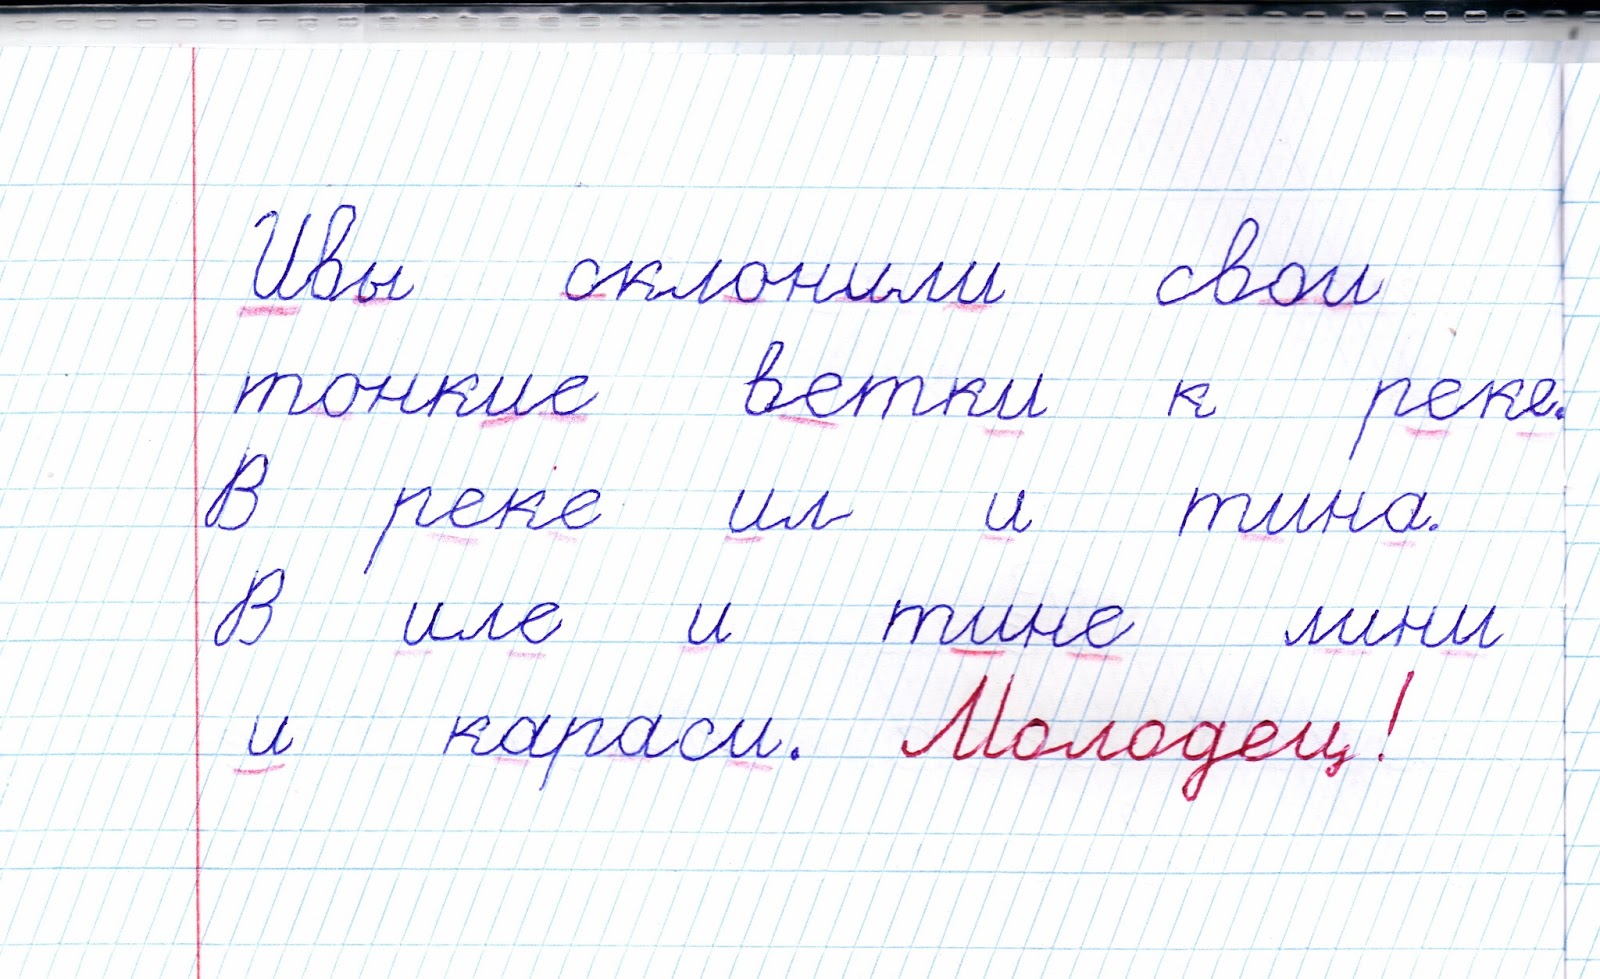 Ивы склонили свои
тонкие ветки к реке.
В реке ил и тина.
В иле и тине лини
и караси. Молодец!